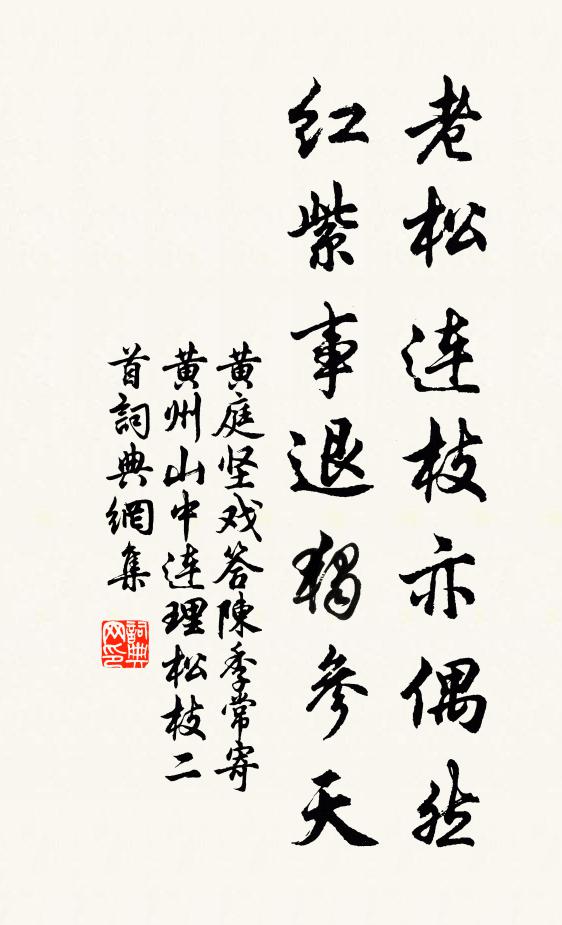 老松連枝亦偶然
紅紫事退獨參天
黄庭坚戏答陳季常寄
黄州山中連理松枝二
首詞典網集
詞典
网印